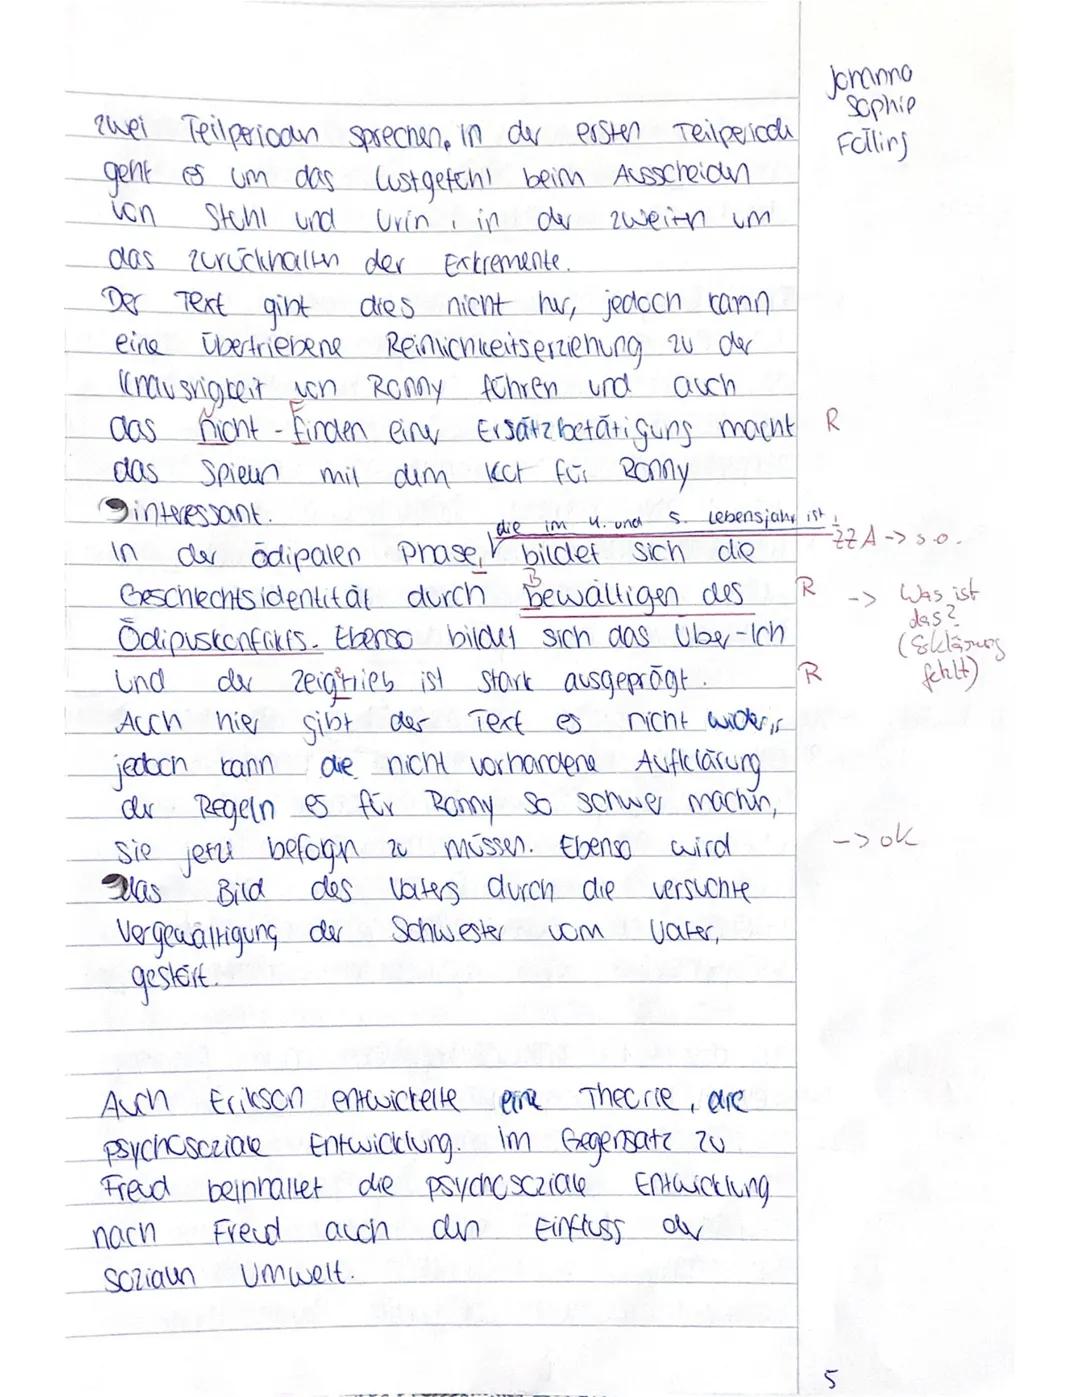 Johanna
Sophie
Fölling
zwei Teilperioden sprechen, in der ersten Teilperiode
geht es um das Lustgefühl beim Ausscheiden
von Stuhl und Urin, in der zweiten um
das zurückhalten der Exkremente.
Der Text gibt dies nicht her, jedoch kann
eine Übertriebene Reinlichkeitserziehung zu der
Knausrigkeit von Ronny führen und auch
das nicht-Finden einer Ersatzbetätigung macht R
das Spielen mit dem Kot für Ronny
interessant.
die im 4. und 5. Lebensjahr ist
In der ödipalen Phase, bildet sich die ZZ A -> s.o.
Geschlechtsidentität durch Bewältigen des R -> Was ist das?
Ödipuskonflikts. Ebenso bildet sich das Über-Ich (Erklärung
und der Zeigtrieb ist stark ausgeprägt. R fehlt)
Auch hier gibt der Text es nicht wider,
jedoch kann die nicht vorhandene Aufklärung
der Regeln es für Ronny so schwer machen,
sie jetzt befolgen zu müssen. Ebenso wird -> ok
das Bild des Vaters durch die versuchte
Vergewaltigung der Schwester vom Vater,
gestört.
Auch Erikson entwickelte eine Theorie, die
psychosoziale Entwicklung. Im Gegensatz zu
Freud beinhaltet die psychosoziale Entwicklung
nach Freud auch den Einfluss der
sozialen Umwelt.
5